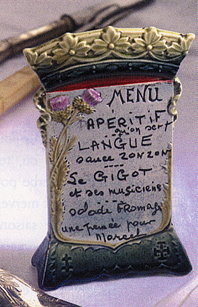 MENU
APÉRITIF
qu'on sert
LANGUE
sauce ZONZON
Le GIGOT
et ses musiciens
salade fromage
une pour
Marcel